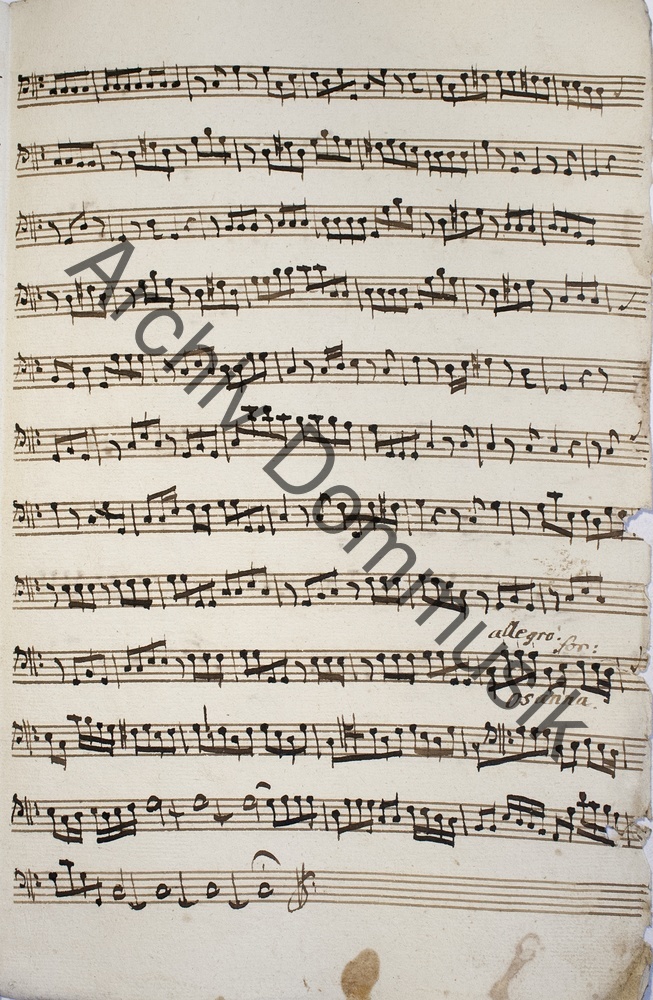 Archiv Dommusik
allegro.
for:
osanna.